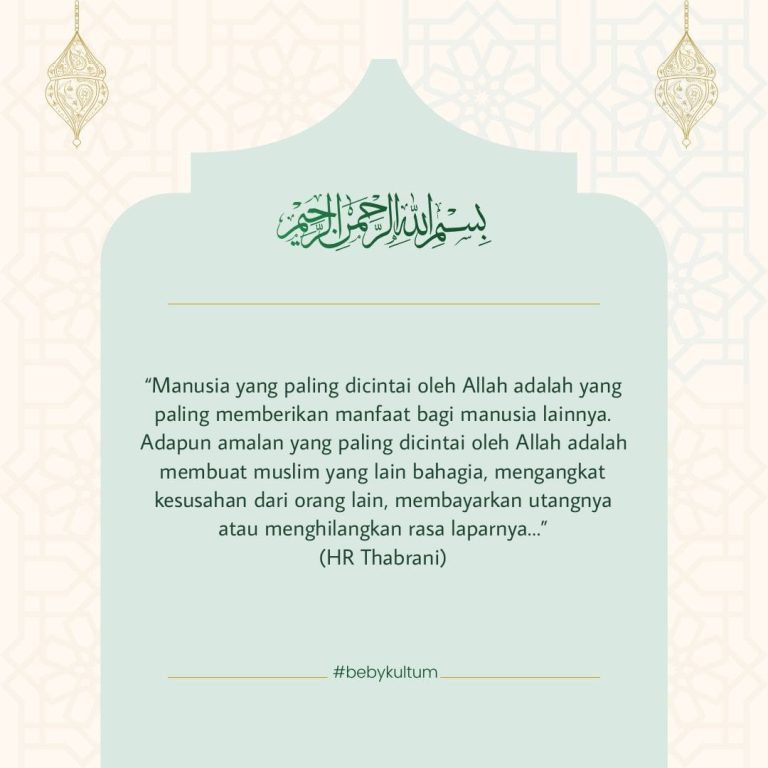 بِسْمِ اللهِ الرَّحْمَنِ الرَّحِيْمِ
“Manusia yang paling dicintai oleh Allah adalah yang
paling memberikan manfaat bagi manusia lainnya.
Adapun amalan yang paling dicintai oleh Allah adalah
membuat muslim yang lain bahagia, mengangkat
kesusahan dari orang lain, membayarkan utangnya
atau menghilangkan rasa laparnya...”
(HR Thabrani)
#bebykultum